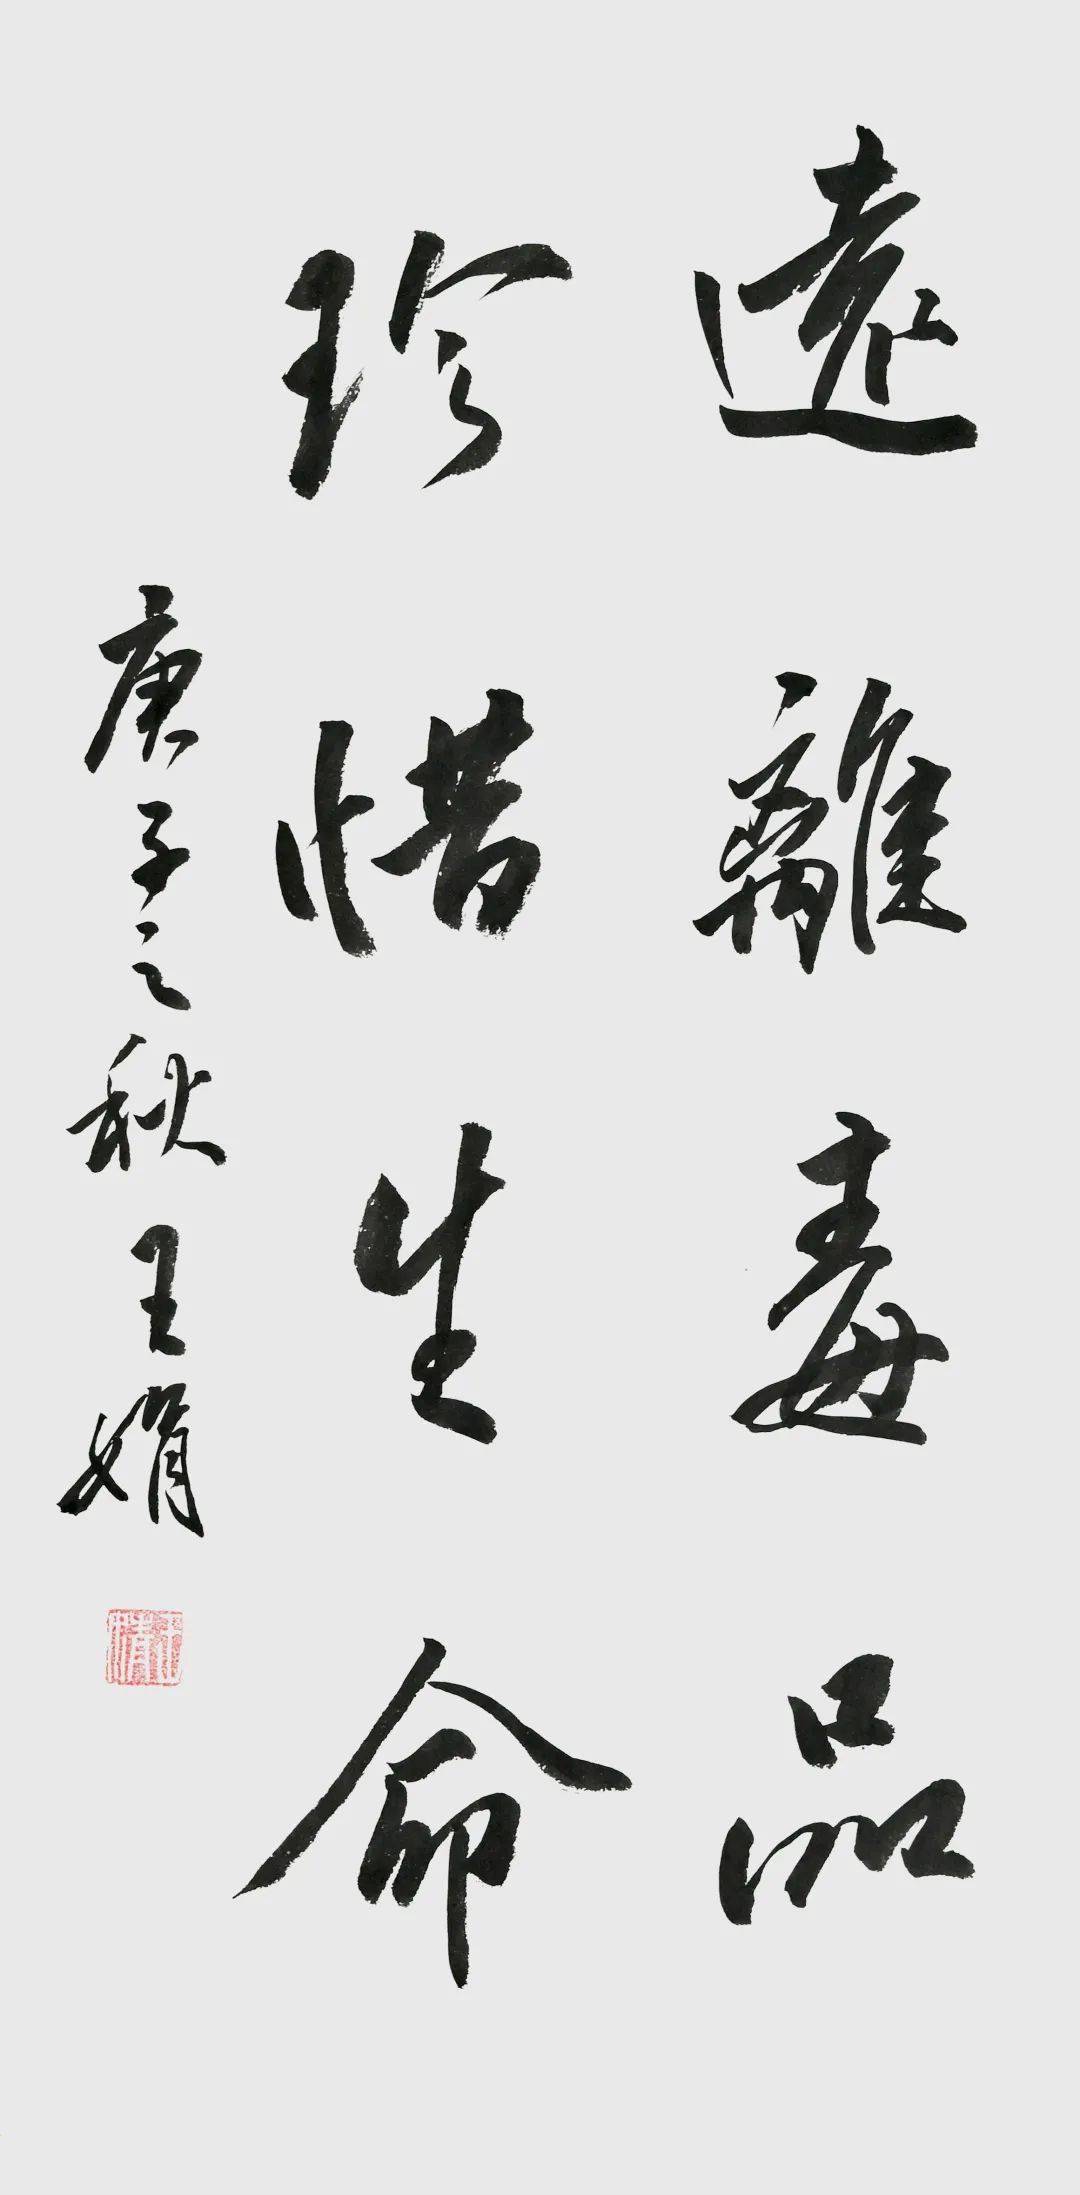 遠離毒品
珍惜生命
庚子之秋王娟